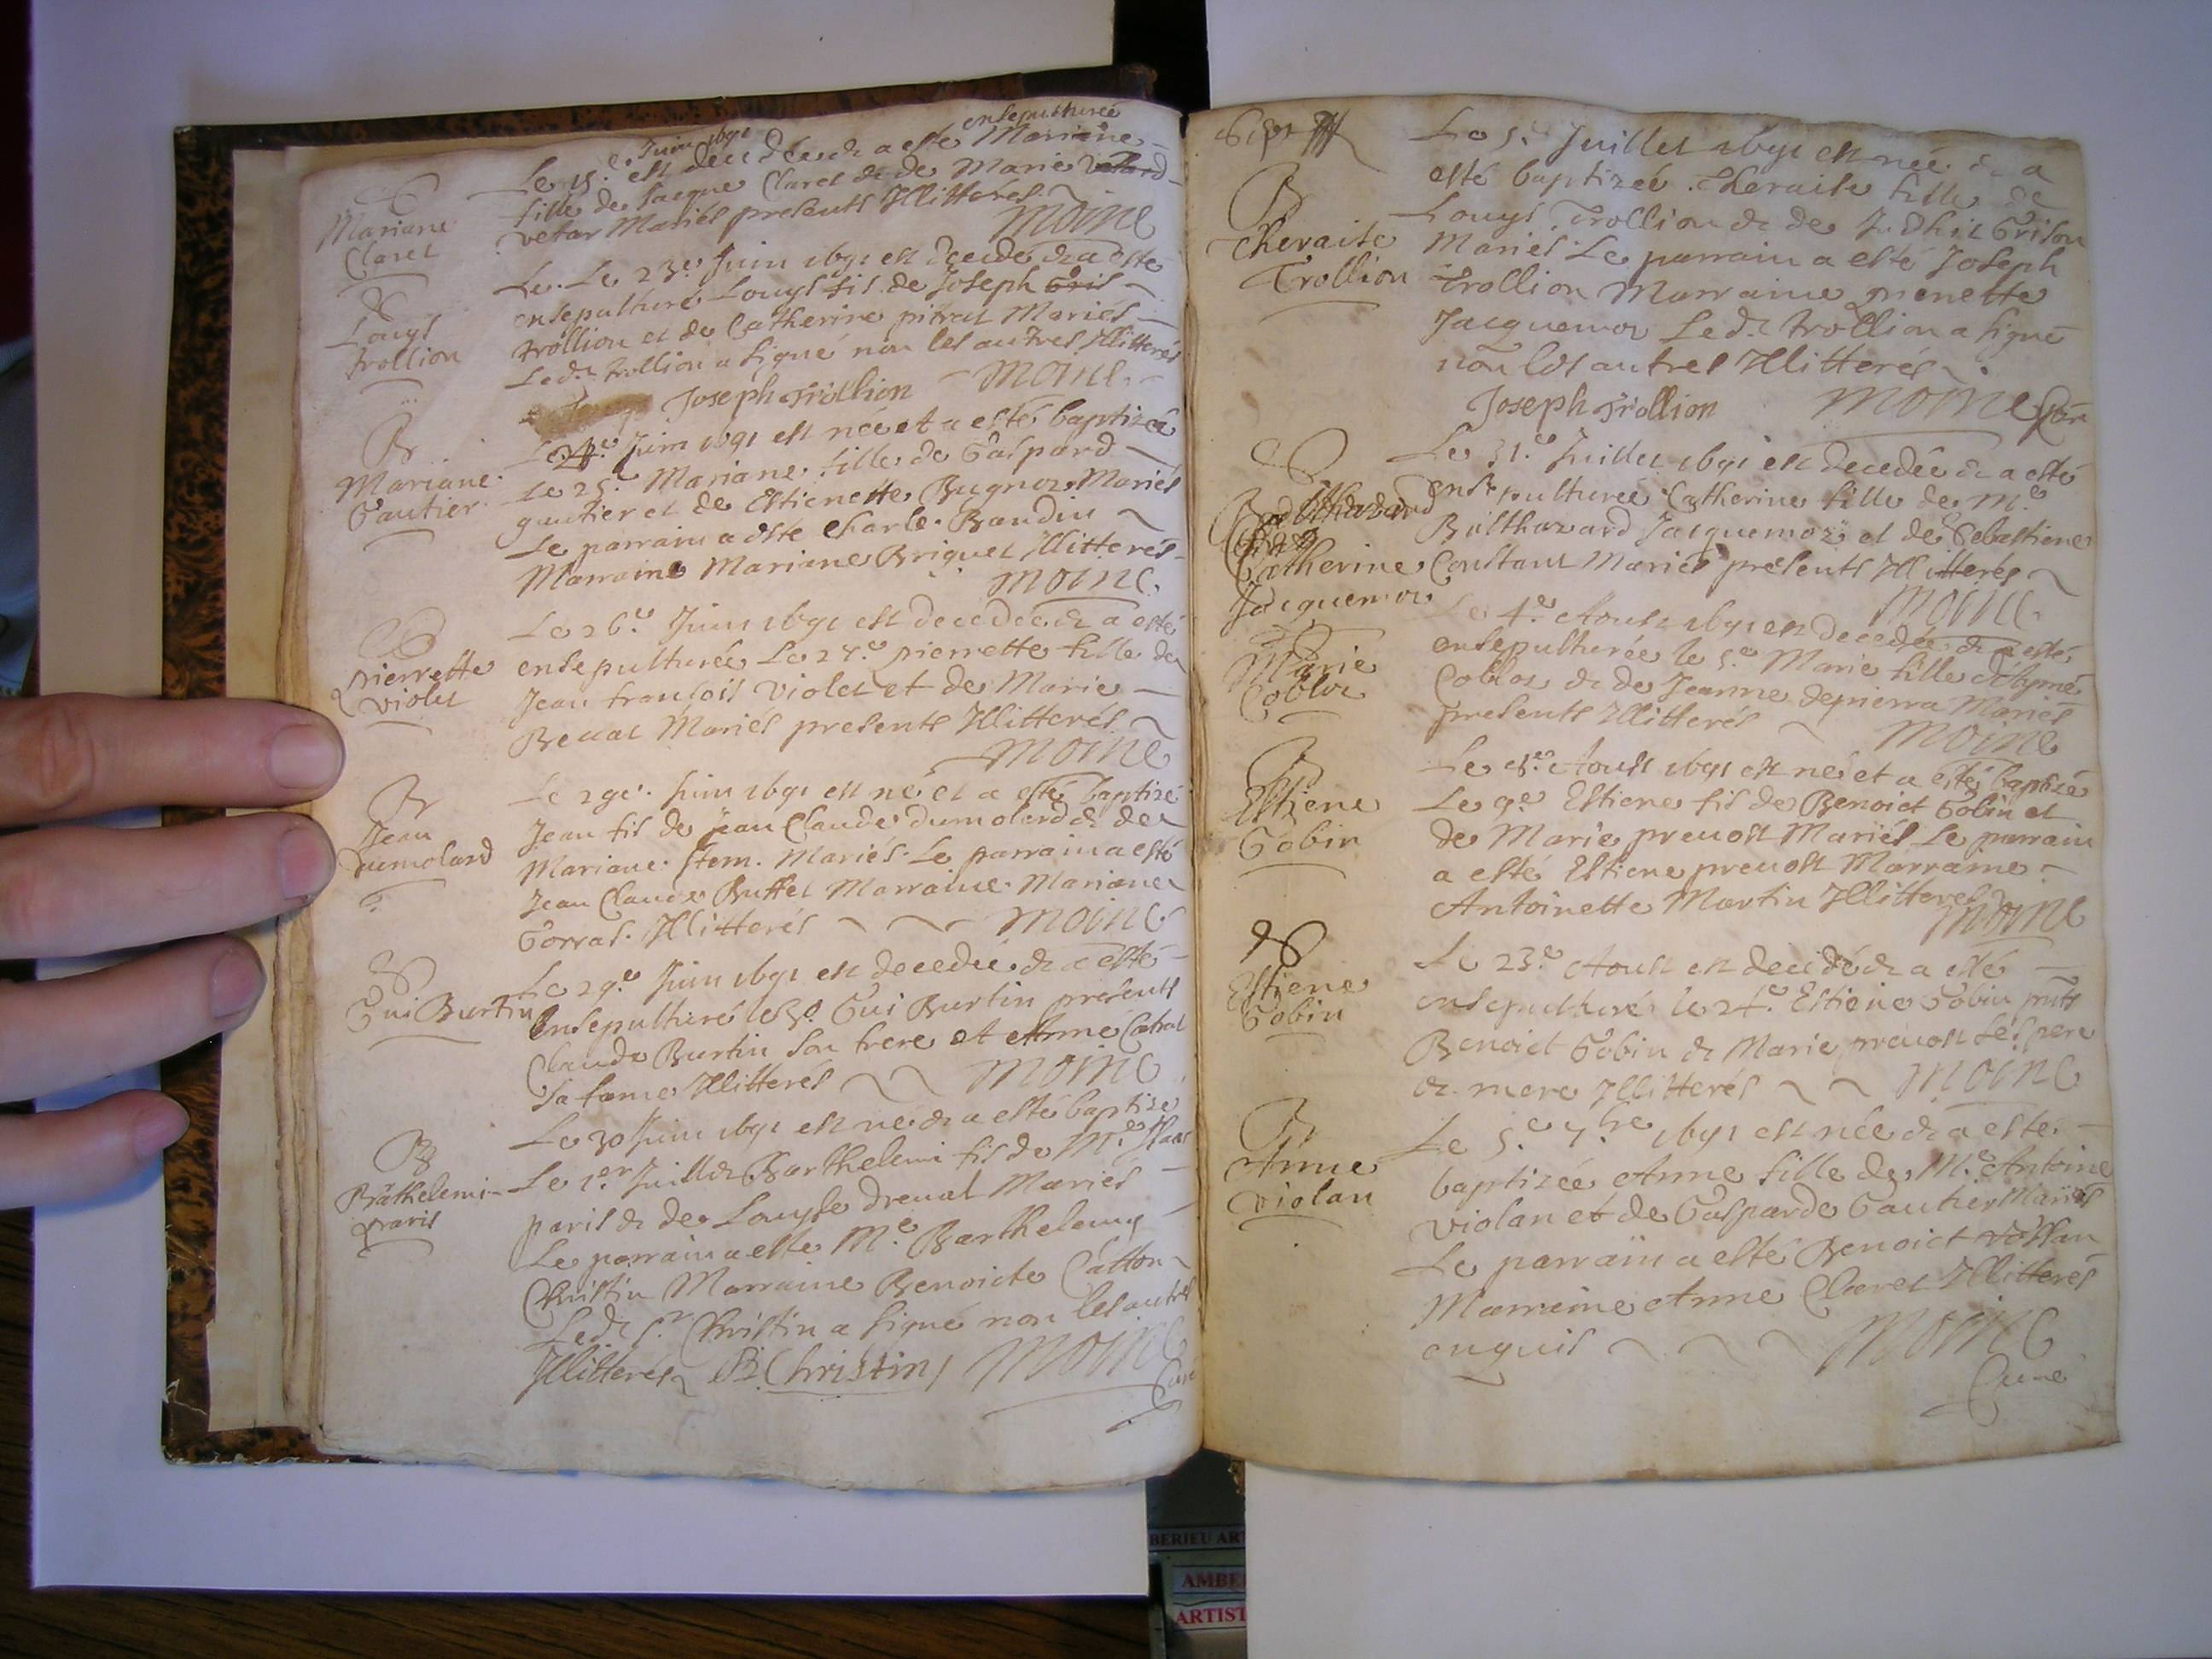 Juin 1691 ensepulturée
Le 15.e est decedée & a esté Mariane
fille de Jacque Claret & de Marie
vetar Mariés presents Illitterés
Moine
Mariane
Claret
Le 23.e Juin 1691 est decedé & a esté
ensepulturé Louys fis de Joseph Gris
trollion et de Catherine pitrat Mariés
Led.t trollion a signé non les autres Illitterés
Joseph Trollion Moine
Louys
trollion
Le 24.e Juin 1691 est née et a esté baptizée
Le 25.e Mariane fille de Gaspard
gautier et de Estienette Bugnoz Mariés
Le parrain a este Charle Baudin
Marraine Mariane Briquet Illitterés
Moine
B
Mariane
Gautier
Le 26.e Juin 1691 est decedée & a esté
ensepulturée Le 27.e pierrette fille de
Jean francois Violet et de Marie
Mariés presents Illitterés
Moine
pierrette
violet
Le 29e. Juin 1691 est né et a esté baptizé
Jean fis de Jean Claude dumolard & de
Mariane Mariés Le parrain a esté
Jean Claude Buffet Marraine Mariane
Gorras Illitterés Moine
B
Jean
dumolard
Le 29.e Juin 1691 est decedé & a esté
Ensepulturé le 30 Gui Burtin presents
Claude Burtin son frere et Anne
sa fame Illitterés Moine
Gui Burtin
Le 30 Juin 1691 est né & a esté baptizé
Le 1.er Juillet Barthelemi fis de M.e
paris & de Louyse dreuat Mariés
Le parrain a esté M.e Barthelemy
Christin Marraine Benoicte Catton
Led.t s.r Christin a signé non les autres
Illitterés B. Christin Moine
Curé
B
Barthelemi
paris
1691
Le 5.e Juillet 1691 est née & a
esté baptizée Theraise fille de
Louys Trollion & de Judhit Grison
Mariés Le parrain a esté Joseph
trollion Marraine pienette
Jacquemoz Led.t trollion a signé
non les autres Illitterés
Joseph Trollion Moine Cur
B
Theraise
Trollion
Le 31.e Juillet 1691 est decedée & a esté
ensepulturée Catherine fille de M.e
Balthazard Jacquemoz et de Sebastiene
Constant Mariés presents Illitterés
Moine
Balthazard
Catherine
Jacquemoz
Le 4.e Aoust 1691 est decedée & a esté
ensepulturée le 5.e Marie fille d'Aymé
Coblot & de Jeanne depierra Mariés
presents Illitterés Moine
Marie
Coblot
Le 8.e Aoust 1691 est né et a esté baptizé
Le 9.e Estiene fis de Benoict Gobin et
de Marie preuost Mariés Le parrain
a esté Estiene preuost Marraine
Antoinette Martin Illitterés
Moine
B
Estiene
Gobin
Le 23.e Aoust est decedé & a esté
ensepulturé le 24.e Estiene Gobin pnts
Benoict Gobin & Marie preuost ses pere
& mere Illitterés Moine
Estiene
Gobin
Le 5.e 7.bre 1691 est née & a esté
baptizée Anne fille de M.e Antoine
Violan et de Gasparde Gautier Mariés
Le parrain a esté Benoict
Marraine Anne Claret Illitterés
enquis Moine
Curé
B
Anne
Violan
BERIEU AR
AMBE
ARTIST